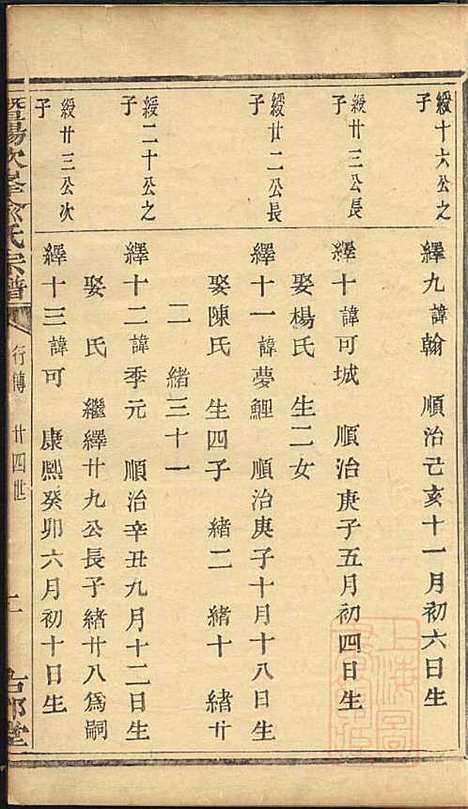 綬十六公之
子
繹九諱翰　順治己亥十一月初六日生
綬廿三公長
子
繹十諱可城　順治庚子五月初四日生
娶楊氏　生二女
綬廿二公長
子
繹十一諱夢鯉　順治庚子十月十八日生
娶陳氏　生四子　緒二　緒十　緒廿
二　緒三十一
綬二十公之
子
繹十二諱季元　順治辛丑九月十二日生
娶　氏　繼繹廿九公長子緒廿八為嗣
綬廿三公次
子
繹十三諱可　康熙癸卯六月初十日生
暨陽次峯俞氏宗譜
行傳　廿四世